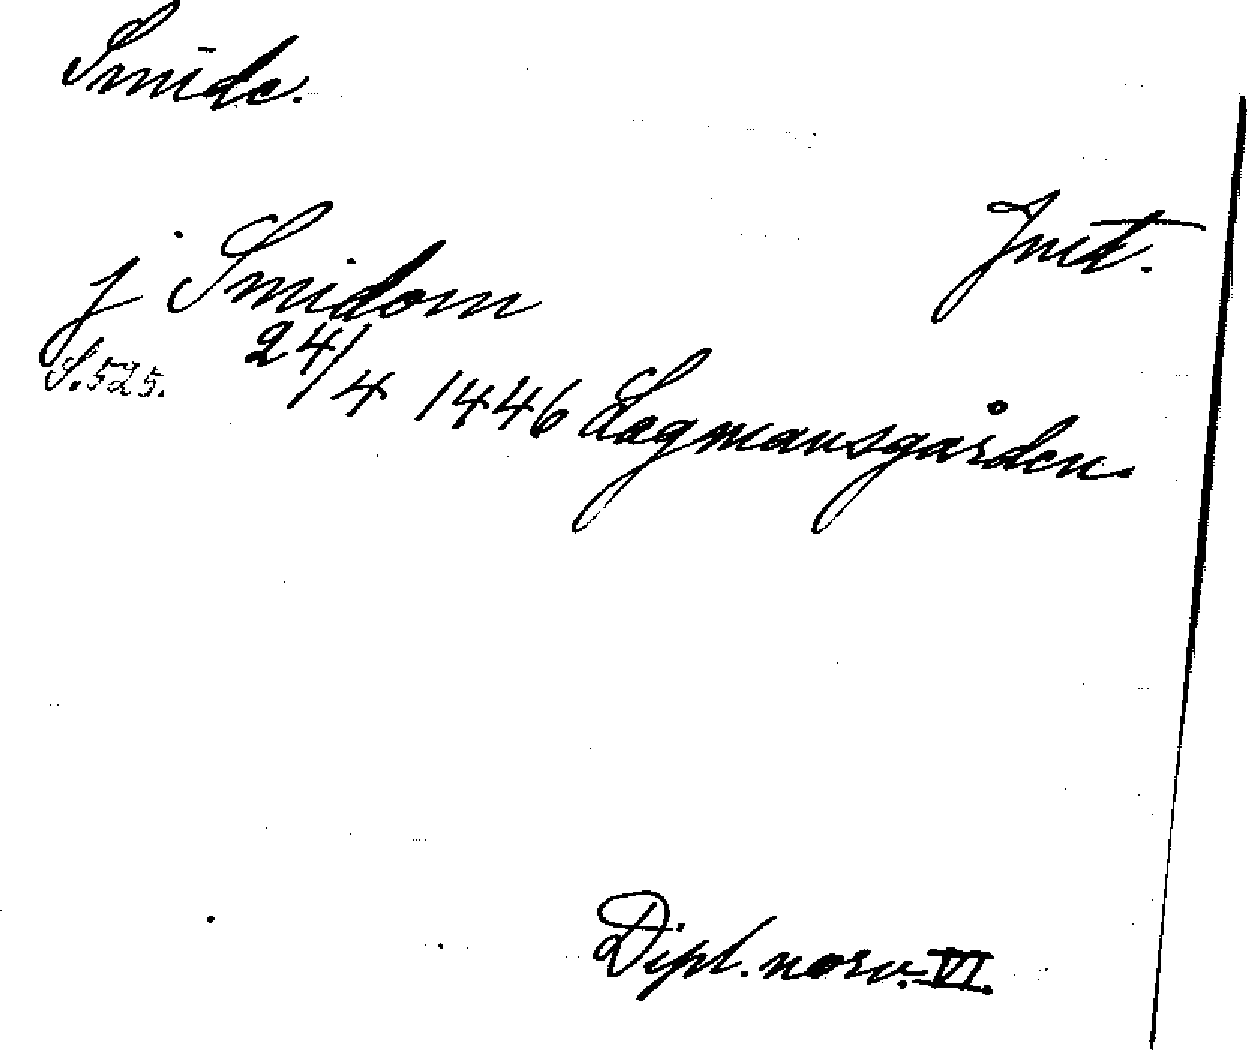 Smīde.
Jnrd.
j Smidom
S. 525. 24/4 1446 Lagmansgården.
Dipl. norv. VI.